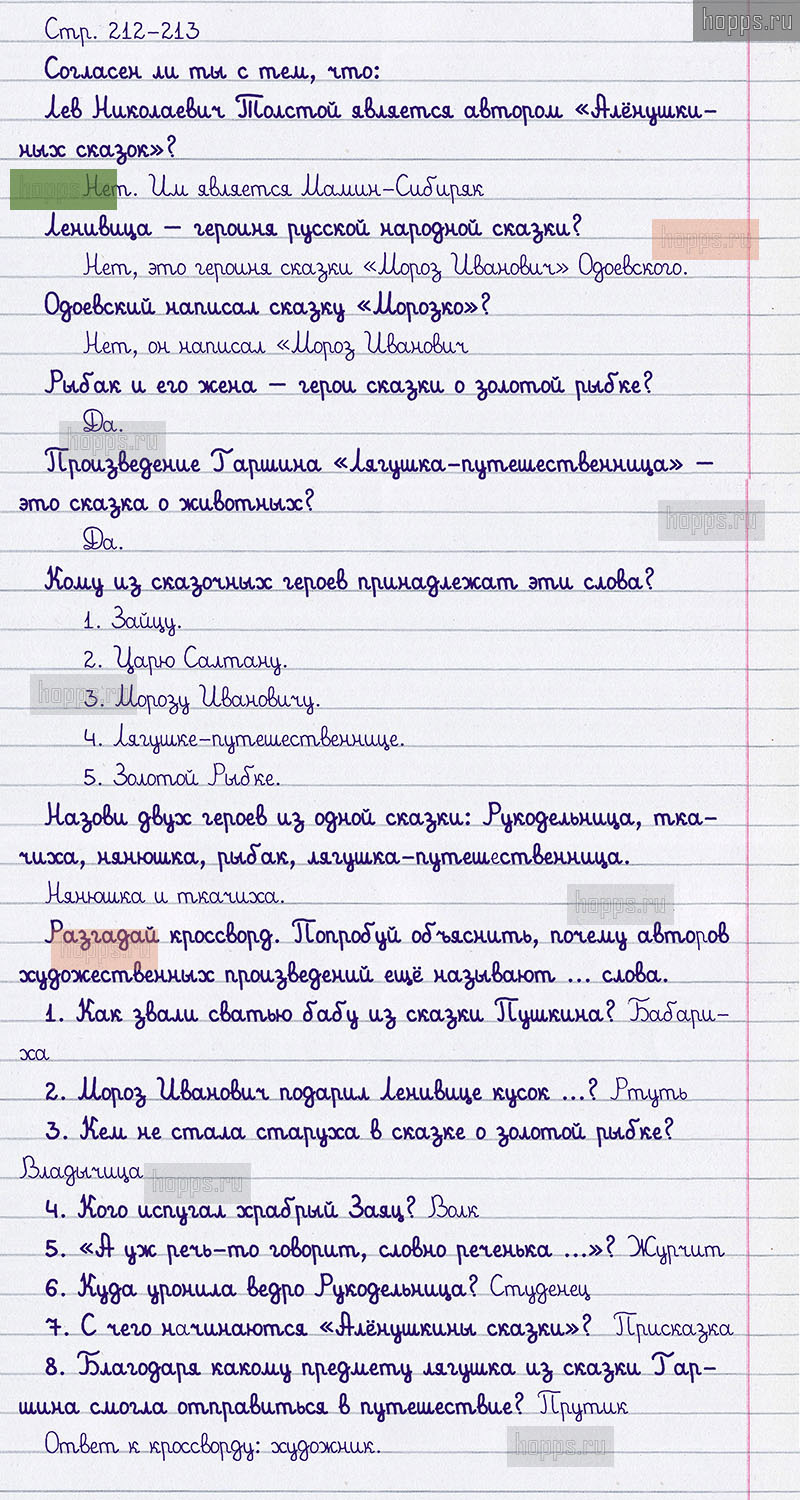 hopps.ru
Стр. 212-213
Согласен ли ты с тем, что:
Лев Николаевич Толстой является автором «Алёнушки-
ных сказок»?
hopps Нет. Им является Мамин-Сибиряк
Ленивица — героиня русской народной сказки?
hopps.ru
Нет, это героиня сказки «Мороз Иванович» Одоевского.
Одоевский написал сказку «Морозко»?
Нет, он написал «Мороз Иванович
Рыбак и его жена — герои сказки о золотой рыбке?
Да.
hopps.ru
Произведение Гаршина «Лягушка-путешественница» —
это сказка о животных?
hopps.ru
Да.
Кому из сказочных героев принадлежат эти слова?
1. Зайцу.
2. Царю Салтану.
hopps.ru
3. Морозу Ивановичу.
4. Лягушке-путешественнице.
5. Золотой Рыбке.
Назови двух героев из одной сказки: Рукодельница, тка-
чиха, нянюшка, рыбак, лягушка-путешественница.
Нянюшка и ткачиха.
hopps.ru
Разгадай кроссворд. Попробуй объяснить, почему авторов
hopps.ru
художественных произведений ещё называют ... слова.
1. Как звали сватью бабу из сказки Пушкина? Бабари-
ха
2. Мороз Иванович подарил Ленивице кусок ...? Ртуть
3. Кем не стала старуха в сказке о золотой рыбке?
Владычица
hopps.ru
4. Кого испугал храбрый Заяц? Волк
5. «А уж речь-то говорит, словно реченька ...»? Журчит
6. Куда уронила ведро Рукодельница? Студенец
7. С чего начинаются «Алёнушкины сказки»? Присказка
8. Благодаря какому предмету лягушка из сказки Гар-
шина смогла отправиться в путешествие? Прутик
Ответ к кроссворду: художник.
hopps.ru